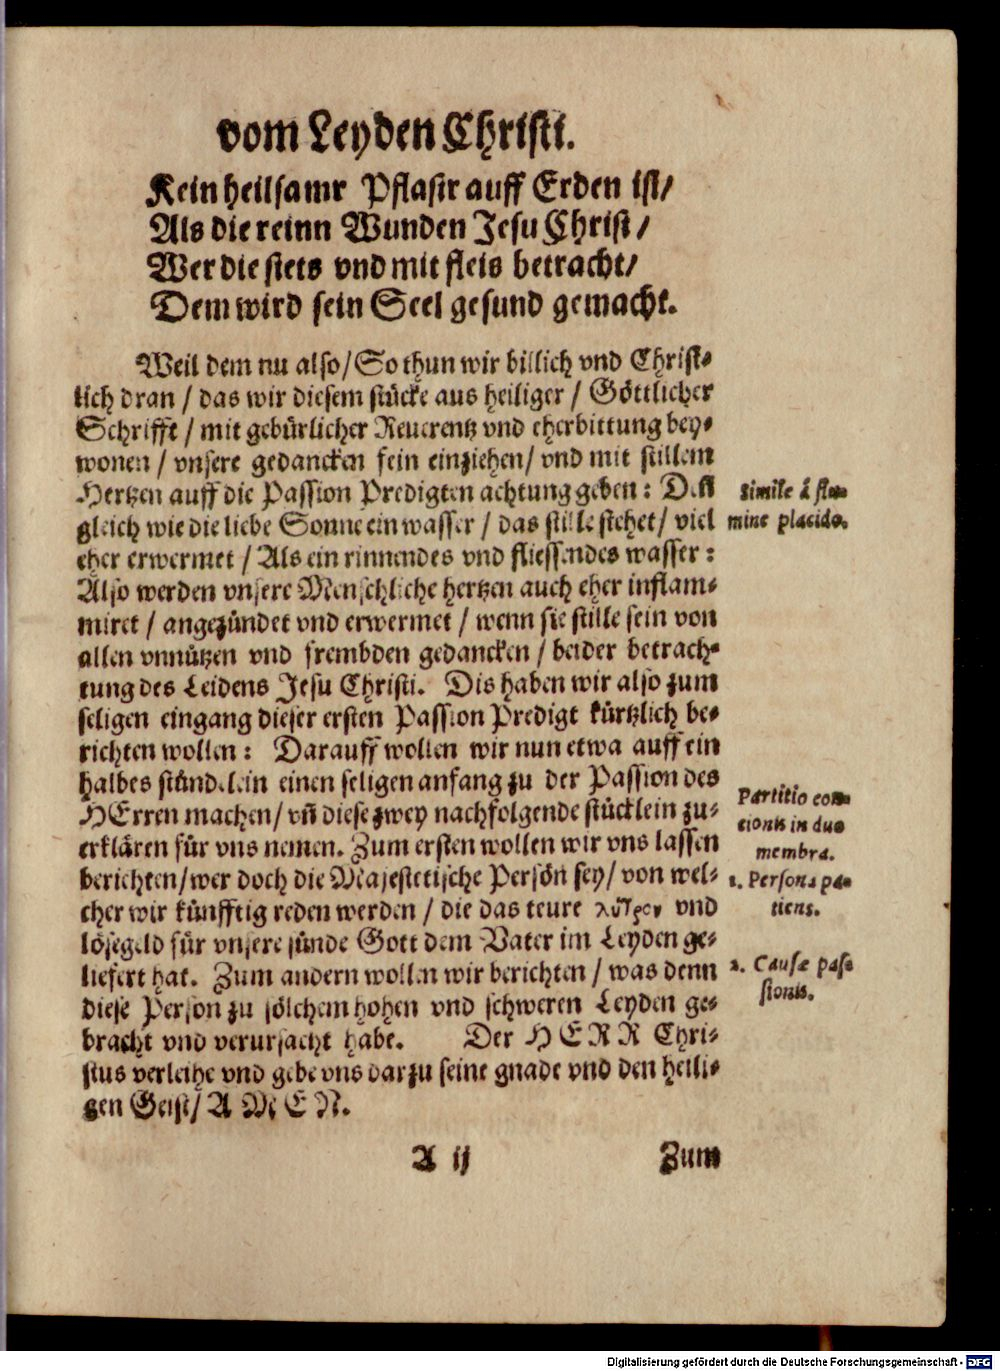 vom Leyden Christi.
Kein heilsamr Pflastr auff Erden ist/
Als die reinn Wunden Jesu Christ/
Wer die stets vnd mit fleis betracht/
Dem wird sein Seel gesund gemacht.
Weil dem nu also/ So thun wir billich vnd Christ-
lich dran / das wir diesem stücke aus heiliger / Göttlicher
Schrifft / mit gebürlicher Reuerentz vnd eherbittung bey-
wonen / vnsere gedancken fein einziehen/ vnd mit stillem
Hertzen auff die Passion Predigten achtung geben: Deñ
gleich wie die liebe Sonne ein wasser / das stille stehet/ viel
eher erwermet / Als ein rinnendes vnd fliessendes wasser:
Also werden vnsere Menschliche hertzen auch eher inflam-
miret / angezündet vnd erwermet / wenn sie stille sein von
allen vnnützen vnd frembden gedancken / bei der betrach-
tung des Leidens Jesu Christi. Dis haben wir also zum
seligen eingang dieser ersten Passion Predigt kürtzlich be-
richten wollen: Darauff wollen wir nun etwa auff ein
halbes stündelein einen seligen anfang zu der Passion des
HErren machen/ vñ diese zwey nachfolgende stücklein zu-
erklären für vns nemen. Zum ersten wollen wir vns lassen
berichten/ wer doch die Majestetische Persön sey/ von wel-
cher wir künfftig reden werden / die das teure λύτρον vnd
lösegeld für vnsere sünde Gott dem Vater im Leyden ge-
liefert hat. Zum andern wollen wir berichten / was denn
diese Person zu sölchem hohen vnd schweren Leyden ge-
bracht vnd verursacht habe. Der HERR Chri-
stus verleihe vnd gebe vns darzu seine gnade vnd den heili-
gen Geist/ AMEN.
simile à flu-
mine placido.
Partitio con-
cionis in duo
membra.
1. Persona pa-
tiens.
2. Causæ pas-
sionis.
A ij
Zum
Digitalisierung gefördert durch die Deutsche Forschungsgemeinschaft - DFG